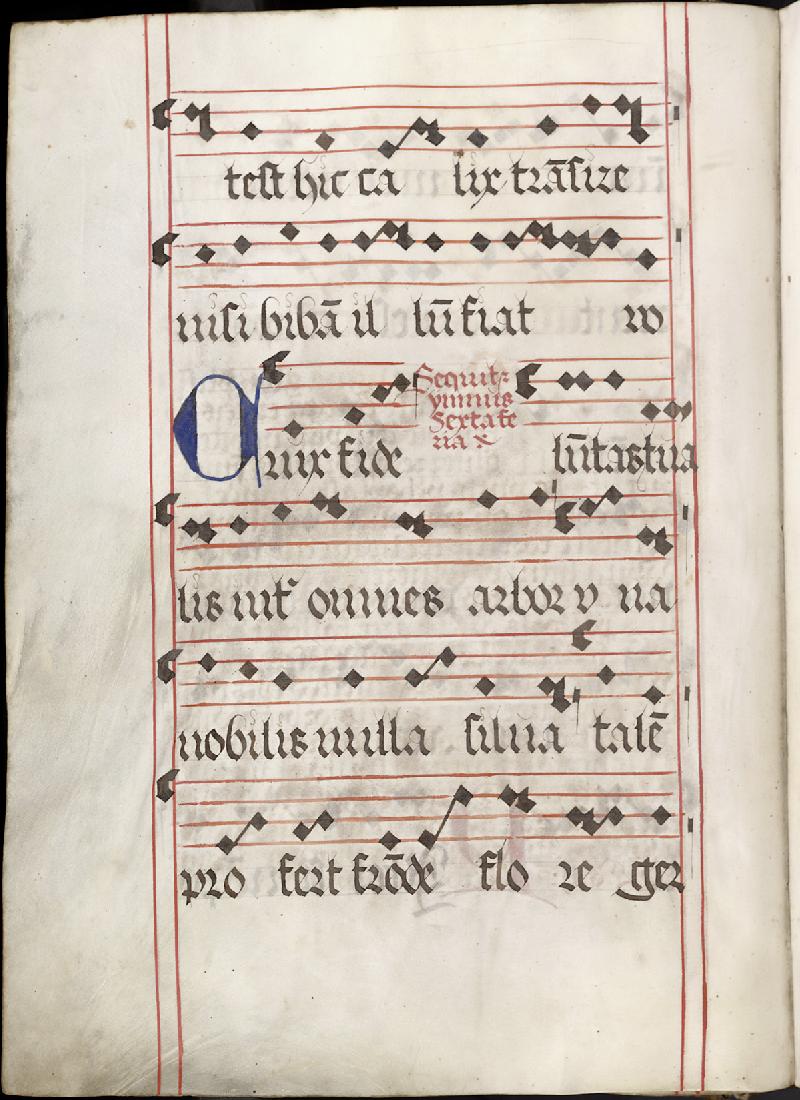 test hic ca lix trāsire
nisi bibā il lū fiat vo
Crux fide lūtas tua
Sequitr
ymnus
Sexta fe
ria x
lis int̄ omnes arbor v na
nobilis nulla silua talē
pro fert frōde flo re ger